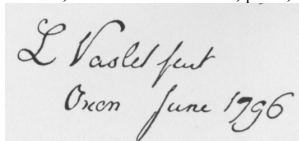 L Vaslet fecit
Oxon June 1796